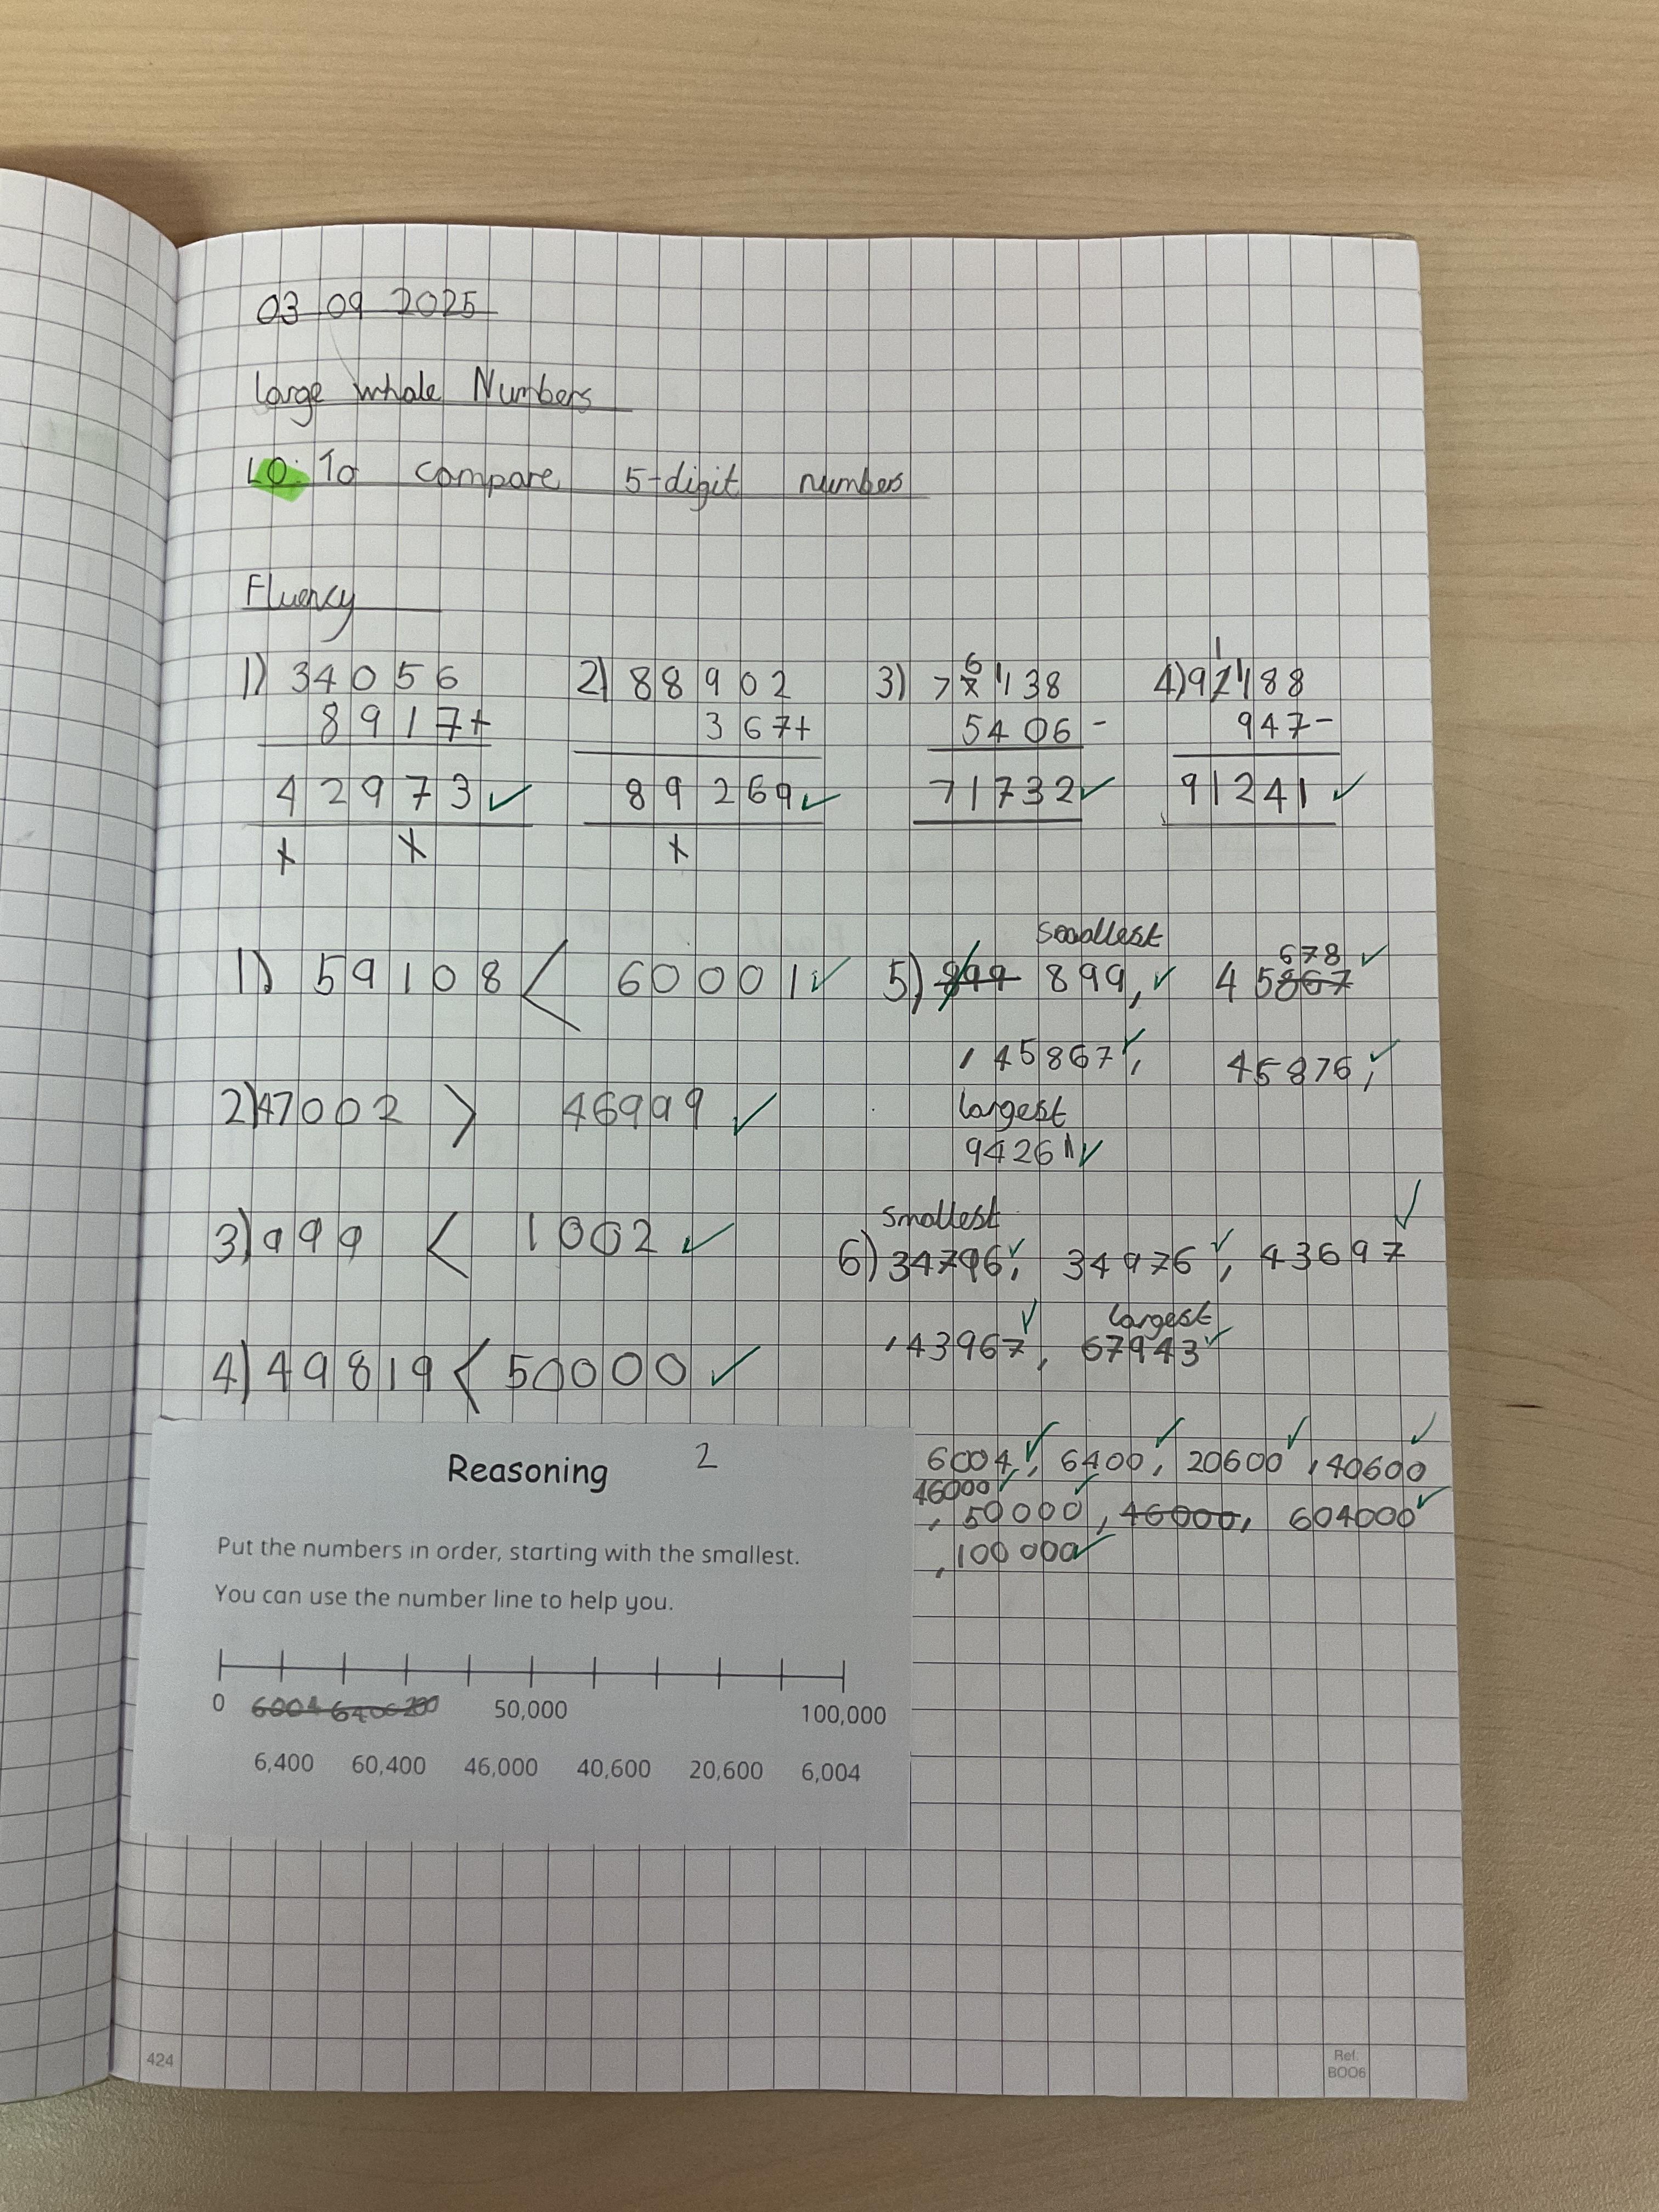 03 09 2025
Large whole Numbers
LO: To compare 5-digit numbers
Fluency
1) 34056
8917+
42973
1 1
2) 88902
367+
89269
1
3) 77138
6 1
5406-
71732
4) 92188
1 1
947-
91241
1) 59108 < 60001
2) 47002 > 46999
3) 999 < 1002
4) 49819 < 50000
smallest
5) 899 899, 45867
678
, 45867, 45876,
largest
94261
smallest
6) 34796, 34976, 43697
largest
, 43967, 67943
Reasoning 2
Put the numbers in order, starting with the smallest.
You can use the number line to help you.
0 6004 6400 200 50,000 100,000
6,400 60,400 46,000 40,600 20,600 6,004
6004, 6400, 20600, 40600
46000
, 50000, 46000, 604000
, 100 000
424
Ref.
BOO6